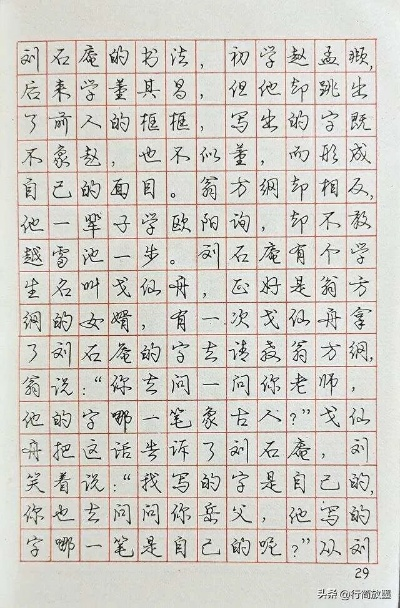 刘石庵的书法，初学赵孟頫，
后来学董其昌，但他却跳出
了前人的框框，写出的字既
不象赵，也不似董，而形成
自己的面目。翁方纲却相反，
他一辈子学欧阳询，却不敢
越雷池一步。刘石庵有个学
生名叫戈仙舟，正好是翁方
纲的女婿，有一次戈仙舟拿
了刘石庵的字去请教翁方纲，
翁说：“你去问一问你老师，
他的字哪一笔象古人？”戈仙
舟把这话告诉了刘石庵，刘
笑着说：“我写的字是自己的，
你也去问问你岳父，他写的
字哪一笔是自己的呢？”从刘
29
头条@行简放疆